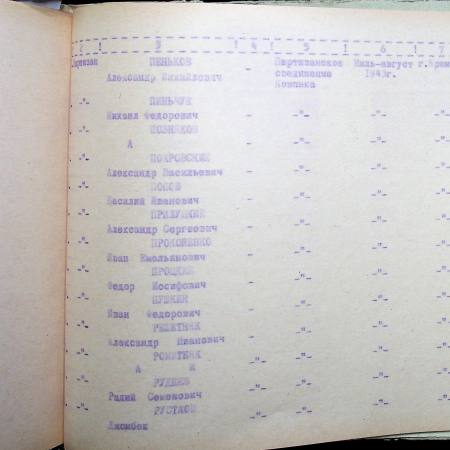 2 ! 3 ! 4 ! 5 ! 6 ! 7
ПЕНЬКОВ Партизанское Июль-август
Александр Михайлович соединение 1943г.
Ковпака
-"- ПИНЬЧУК
Михаил Федорович - -"- -"- -"-
-"- ПОЗНЯКОВ
А - -"- -"- -"-
-"- ПОКРОВСКИЙ
Александр Васильевич - -"- -"- -"-
-"- ПОПОВ
Василий Иванович - -"- -"- -"-
-"- ПРИЛУЦКИЙ
Александр Сергеевич - -"- -"- -"-
-"- ПРОКОПЕНКО
Иван Емельянович - -"- -"- -"-
-"- ПРОЦКИЙ
Федор Иосифович - -"- -"- -"-
-"- ПУШКИН
Иван Федорович - -"- -"- -"-
-"- РЕШЕТНЯК
Александр Иванович - -"- -"- -"-
-"-
А И -"- -"- -"- -"-
-"- РУДНЕВ
Радий Семенович -"- -"- -"- -"-
-"- РУСТАМ
-"- -"- -"- -"-